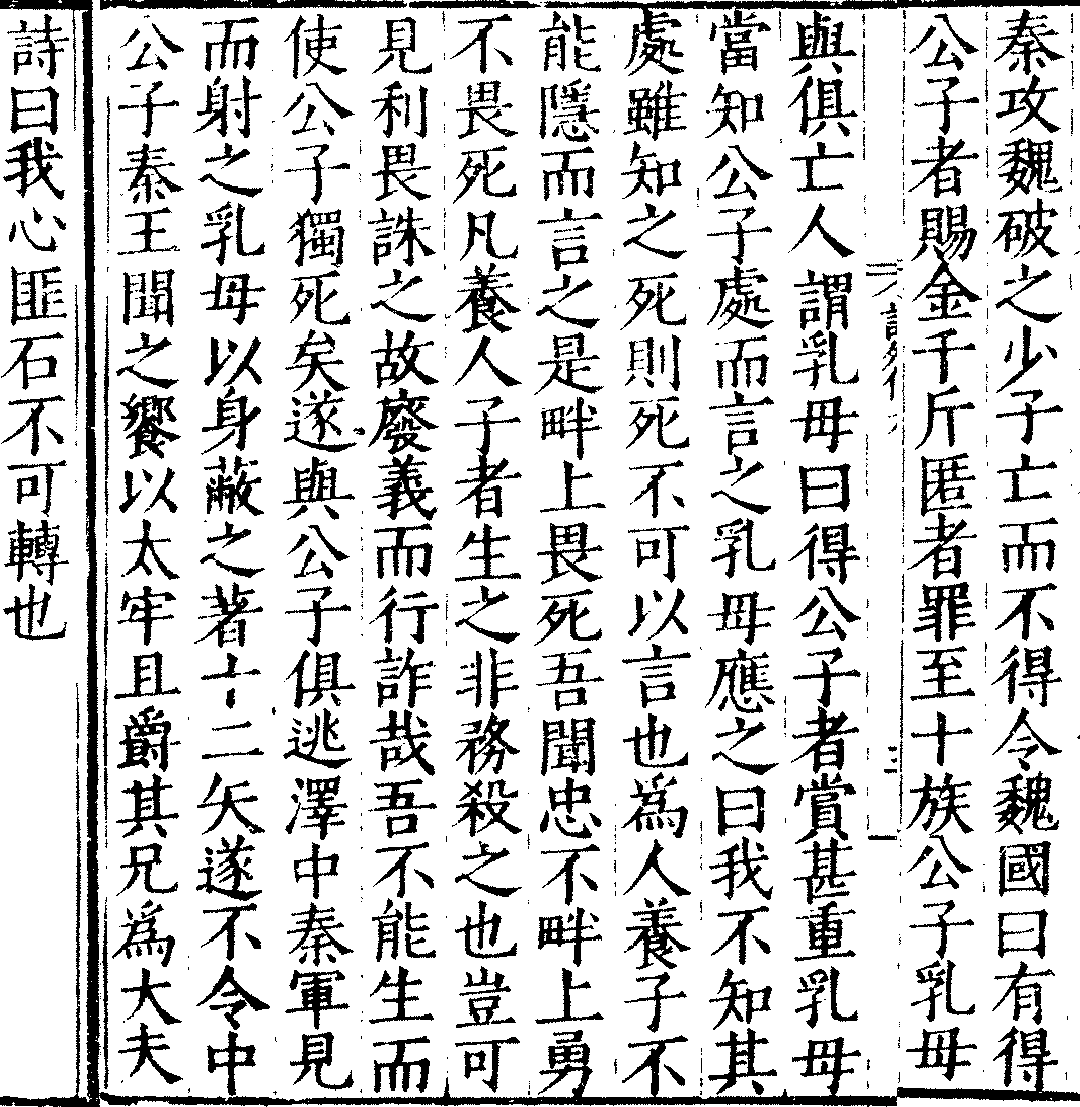 秦攻魏破之少子亡而不得令魏國曰有得
公子者賜金千斤匿者罪至十族公子乳母
與俱亡人謂乳母曰得公子者賞甚重乳母
當知公子處而言之乳母應之曰我不知其
處雖知之死則死不可以言也為人養子不
能隱而言之是畔上畏死吾聞忠不畔上勇
不畏死凡養人子者生之非務殺之也豈可
見利畏誅之故廢義而行詐哉吾不能生而
使公子獨死矣遂與公子俱逃澤中秦軍見
而射之乳母以身蔽之著十二矢遂不令中
公子秦王聞之饗以太牢且爵其兄為大夫
詩曰我心匪石不可轉也